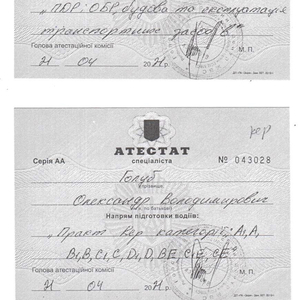 „ПДР, ОБР, будова та експлуатація
транспортних засобів"
Голова атестаційної комісії
21 04 2021
М.П.
АТЕСТАТ
спеціаліста
Серія АА
№ 043028
Голуб
(прізвище)
Олександр Володимирович
(ім'я, по батькові)
Напрям підготовки водіїв:
„Практ. кер категорії: А1, А,
В1, В, С1, С, D1, D, ВЕ, С1Е, СЕ"
Голова атестаційної комісії
21 04 2021
М.П.